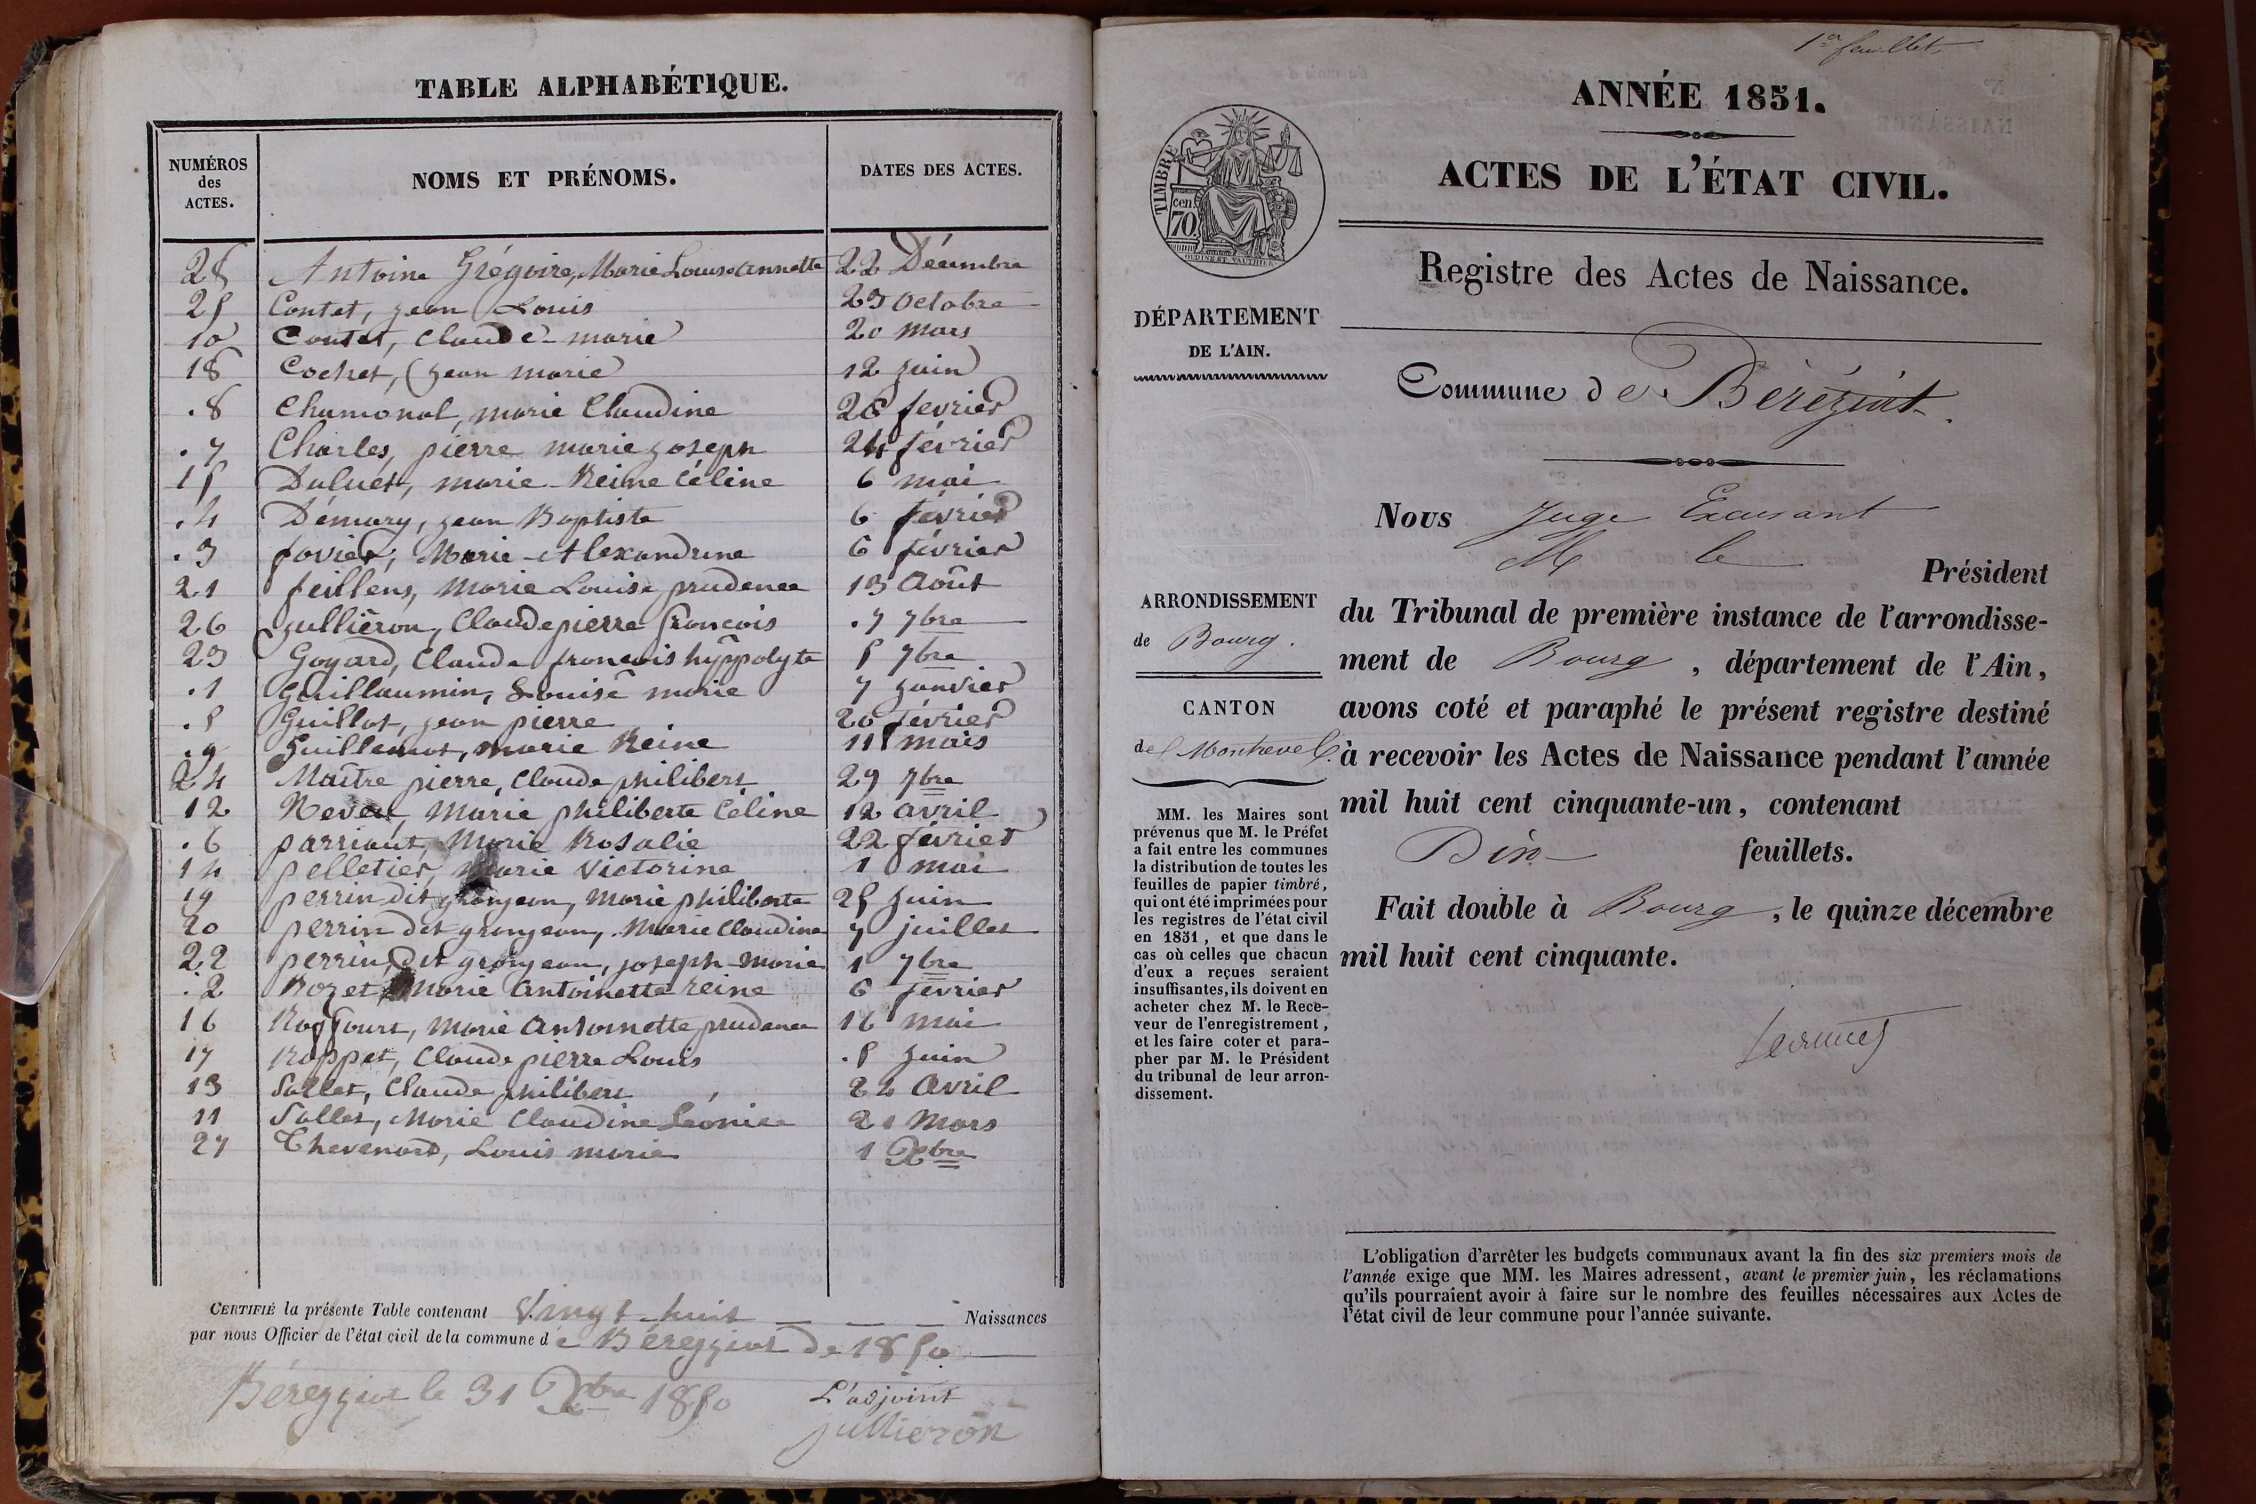 TABLE ALPHABÉTIQUE.
NUMÉROS des ACTES. NOMS ET PRÉNOMS. DATES DES ACTES.
28 Antoine Grégoire, Marie Louise annette 22 Décembre
25 Contet, jean Louis 23 octobre
10 Contet, Claude marie 20 mars
18 Cochet, jean marie 12 juin
.8 Chamonal, marie Claudine 26 fevrier
.7 Charles, pierre marie joseph 24 février
15 marie Reine Céline 6 mai
.4 Démary, jean Baptiste 6 février
.3 favier, Marie Alexandrine 6 février
21 feillens, Marie Louise prudence 13 Août
26 jullièron, Claude pierre françois .7 9bre
23 Goyard, Claude francois hyppolyte 5 7bre
.1 Guillaumin, Louise marie 7 janvier
.5 Guillot, jean pierre 20 février
.9 Guillemot, marie Reine 11 mars
24 Maître pierre, Claude philibert 29 7bre
12 Marie philiberte Céline 12 avril
.6 parriaut, Marie Rosalie 22 février
14 pelletier, Marie Victorine 1 mai
19 perrin dit granjean, Marie philiberte 25 juin
20 perrin dit granjean, Marie Claudine 7 juillet
22 perrin, dit granjean, joseph marie 1 7bre
.2 Rozet, Marie Antoinette reine 6 février
16 Marie Antoinette prudence 16 mai
17 Roppet, Claude pierre Louis .5 juin
13 Sallet, Claude philibert 22 Avril
11 Sallet, Marie Claudine Léonice 21 Mars
27 Thevenard, Louis marie 1 Xbre
CERTIFIÉ la présente Table contenant Vingt-huit Naissances
par nous Officier de l'état civil de la commune de Béreyziat de 1850
Béreyziat le 31 Xbre 1850 L'adjoint
jullièron
1er feuillet
ANNÉE 1851.
ACTES DE L'ÉTAT CIVIL.
TIMBRE
70 cen.
Registre des Actes de Naissance.
DÉPARTEMENT
DE L'AIN.
Commune de Béréziat.
Nous Juge Excusant
M le Président
ARRONDISSEMENT
de Bourg.
CANTON
de Montrevel.
du Tribunal de première instance de l'arrondisse-
ment de Bourg, département de l'Ain,
avons coté et paraphé le présent registre destiné
à recevoir les Actes de Naissance pendant l'année
mil huit cent cinquante-un, contenant
Dix feuillets.
Fait double à Bourg, le quinze décembre
mil huit cent cinquante.
MM. les Maires sont
prévenus que M. le Préfet
a fait entre les communes
la distribution de toutes les
feuilles de papier timbré,
qui ont été imprimées pour
les registres de l'état civil
en 1851, et que dans le
cas où celles que chacun
d'eux a reçues seraient
insuffisantes, ils doivent en
acheter chez M. le Rece-
veur de l'enregistrement,
et les faire coter et para-
pher par M. le Président
du tribunal de leur arron-
dissement.
L'obligation d'arrêter les budgets communaux avant la fin des six premiers mois de
l'année exige que MM. les Maires adressent, avant le premier juin, les réclamations
qu'ils pourraient avoir à faire sur le nombre des feuilles nécessaires aux Actes de
l'état civil de leur commune pour l'année suivante.